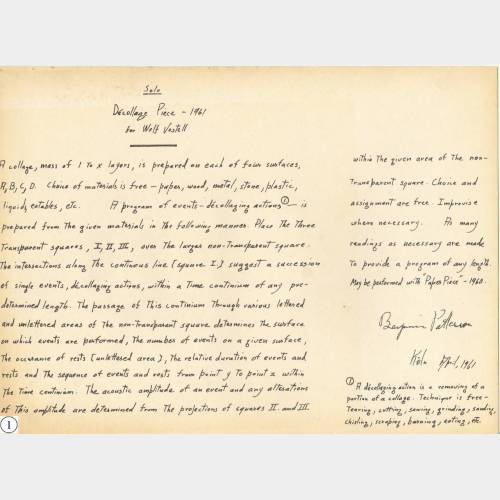 Solo
Décollage Piece - 1961
for Wolf Vostell
A collage, mass of 1 to x layers, is prepared on each of four surfaces,
A, B, C, D. Choice of materials is free - paper, wood, metal, stone, plastic,
liquids, eatables, etc. A program of events - décollaging actions ① - is
prepared from the given materials in the following manner. Place the three
transparent squares, I, II, III, over the larger non-transparent square.
The intersections along the continuous line (square I.) suggest a succession
of single events, décollaging actions, within a time continium of any pre-
determined length. The passage of this continium through various lettered
and unlettered areas of the non-transparent square determines the surface
on which events are performed, the number of events on a given surface,
the occurance of rests (unlettered area), the relative duration of events and
rests and the sequence of events and rests from point y to point z within
the time continium. The acoustic amplitude of an event and any alterations
of this amplitude are determined from the projections of squares II. and III
within the given area of the non-
transparent square. Choice and
assignment are free. Improvise
where necessary. As many
readings as necessary are made
to provide a program of any length.
May be performed with "Paper Piece" - 1960.
Benjamin Patterson
Köln April, 1961
① A décollaging action is a removing of a
portion of a collage. Technique is free -
tearing, cutting, sawing, grinding, sanding,
chisling, scraping, burning, eating, etc.
1